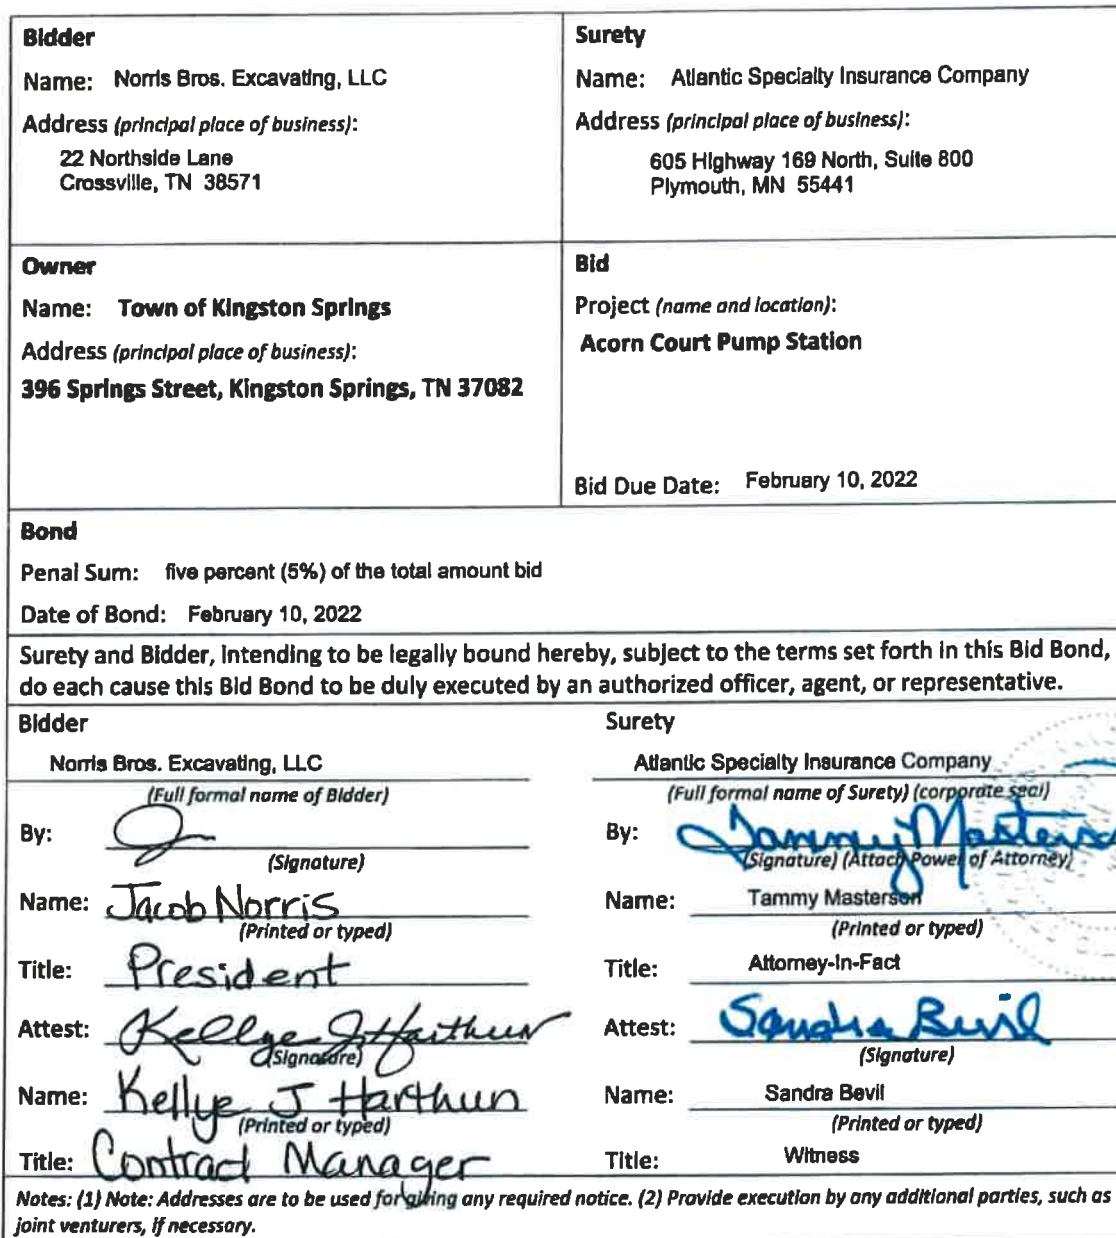 Bidder
Name: Norris Bros. Excavating, LLC
Address (principal place of business):
22 Northside Lane
Crossville, TN 38571
Surety
Name: Atlantic Specialty Insurance Company
Address (principal place of business):
605 Highway 169 North, Suite 800
Plymouth, MN 55441
Owner
Name: Town of Kingston Springs
Address (principal place of business):
396 Springs Street, Kingston Springs, TN 37082
Bid
Project (name and location):
Acorn Court Pump Station
Bid Due Date: February 10, 2022
Bond
Penal Sum: five percent (5%) of the total amount bid
Date of Bond: February 10, 2022
Surety and Bidder, intending to be legally bound hereby, subject to the terms set forth in this Bid Bond,
do each cause this Bid Bond to be duly executed by an authorized officer, agent, or representative.
Bidder
Norris Bros. Excavating, LLC
(Full formal name of Bidder)
By:
(Signature)
Name: Jacob Norris
(Printed or typed)
Title: President
Attest: Kellye J Harthun
(Signature)
Name: Kellye J Harthun
(Printed or typed)
Title: Contract Manager
Surety
Atlantic Specialty Insurance Company
(Full formal name of Surety) (corporate seal)
By: Tammy Masterson
(Signature) (Attach Power of Attorney)
Name: Tammy Masterson
(Printed or typed)
Title: Attorney-In-Fact
Attest: Sandra Bevil
(Signature)
Name: Sandra Bevil
(Printed or typed)
Title: Witness
Notes: (1) Note: Addresses are to be used for giving any required notice. (2) Provide execution by any additional parties, such as
joint venturers, if necessary.